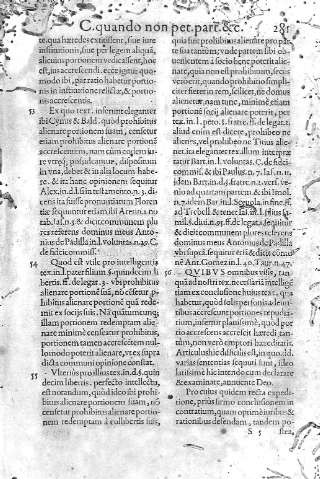 C. quando non pet. part. &c. 281
te qua hæredes exsistent, siue iure
institutionis, siue per legem aliquã,
alienam portionem vedicassent, hoc
est, ius accrescendi. ecce igitur quo-
modo ibi, par ratio habetur portio-
nis in institutione relictæ, & portio-
nis accrescentis.
53 Ex quo text. inferunt eleganter
ibi Cynus & Bald. quod prohibitus
alienare portionem suam, censetur
etiam prohibitus alienare portionẽ
accrescentem, nam cùm eogem iu-
re vtroque possideantur, dispositum
in vna, debet & in alia locum habe-
re. & ita hanc opinionem sequitur
Alex. in d. l. si in testamento. n. 3. di-
cens ita fuisse pronuntiatum Floren
tiæ
refert dominus meus Anto-
nius de Padilla in l. voluntas. n. 39. C.
de fideicommis.
54 Quod est vtile pro intelligentia
tex. in l. paterfiliam §. quindecim li
bertis. ff. de legat. 3. vbi prohibitus
alienare portionẽ suã, nõ cẽsetur pro-
hibitus alienare portionẽ quã rede-
mit ex socijs suis. Nã quãtumcunque
illam portionem redemptam alie-
nare minimè censeatur prohibitus,
portionem tamen accrescẽtem nul-
lo modo poterit alienare, vt ex supra
dicta communi opinione constat.
55 Vlterius pro illius tex. in d. §. quin
decim libertis. perfecto intellectu,
est notandum, quòd ideo ibi prohi-
bitus alienare portionem suam, nõ
censetur prohibitus alienare portio-
nem redemptam à collibertis suis,
quia fuit prohibitus alienare pro par-
te sua tantùm; vnde partem sibi ob-
uenientem à socio bene potest alie-
nare, quia non est prohibitum, secùs
verò
citer fieret in rem, scilicet, ne domus
alienetur, nam tunc, minimè etiam
portionẽ socij alienare poterit, per
tex. in l. peto. §. fratre. ff. de legat. 2.
aliud enim est dicere, prohibeo ne
alienes, vel prohibeo ne Titius alie-
net. ita eleganter tex. illum interpræ
tatur Bart. in l. voluntas. C. de fidei-
commis. & ibi Paulus. n. 7. Ias. n. 11.
idem Bart. in d. §. fratre. n. 2. vers. ve-
nio ad quartam partem & ibi Imol.
n. 7. idem Bar.
ad Trebell. & tenet
mã. §. diui. n. 25. ff. de legat. 2. sequitur
& dicit communem plures referens
dominus meus Antonius de Padilla
vbi supra. sequitur etiã & dicit cõmu-
nẽ Ant. Gomez in l. 40. Taur. n. 47.
56 QVIBVS omnibus visis, tan-
quã ad nostri tex. necessariã intelligẽ
tiam ex conclusione huius tex.
habetur, quòd solis personis à de
tibus accrescunt portiones repudia-
tium, iunctur planissimè, quod por
tio accrescens accrescit hæredi tan-
tùm, non verò emptori hæreditatis.
Articulus hic difficilis est, in quo. dd.
varias sententias sequuti sunt, ideo
latissimè hic intendo eum declarare
& examinare, annuente Deo.
Pro cuius quidem recta expedi-
tione, prius firmo conclusionem in
contrarium, quam opinionibus &
rationibus defendam, tandem po-
S 5 stea,